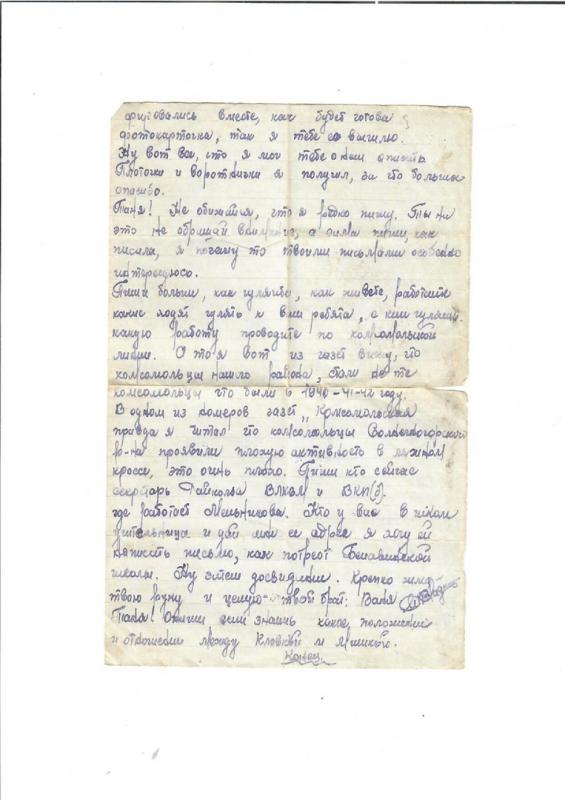 вместе, как будет готова
фотокарточка, так я тебе её вышлю.
Ну вот все, что я мог тебе описать
Платочки и воротнички я получил, за что большое
спасибо.
Таня! Не обижайся, что я редко пишу. Ты на
это не обращай внимания, а сама пиши, как
писала, я почему то твоими письмами особенно
интересуюсь.
Пиши больше, как гуляете, как живете, работаете
какие ходят гулять к вам ребята, с кем
какую работу проводите по комсомольской
линии. А то я вот из газет вижу, что
комсомольцы нашего района, стали не те
комсомольцы что были в 1940-41-42 году.
В одном из номеров газет „Комсомольская
правда я читал что комсомольцы
р-на проявили плохую активность в лыжном
кроссе, это очень плохо. Пиши кто сейчас
секретарь Райкома ВЛКСМ и ВКП(б).
где работает Мельникова. Кто у вас в школе
учительница и дай мне ее адрес я хочу ей
написать письмо, как патриот
школы. Ну затем досвидания. Крепко жму
твою руку и целую твой брат: Ваня
Таня! Опиши если знаешь какое положение
и отношение между Клавкой и Мишкой.
Конец